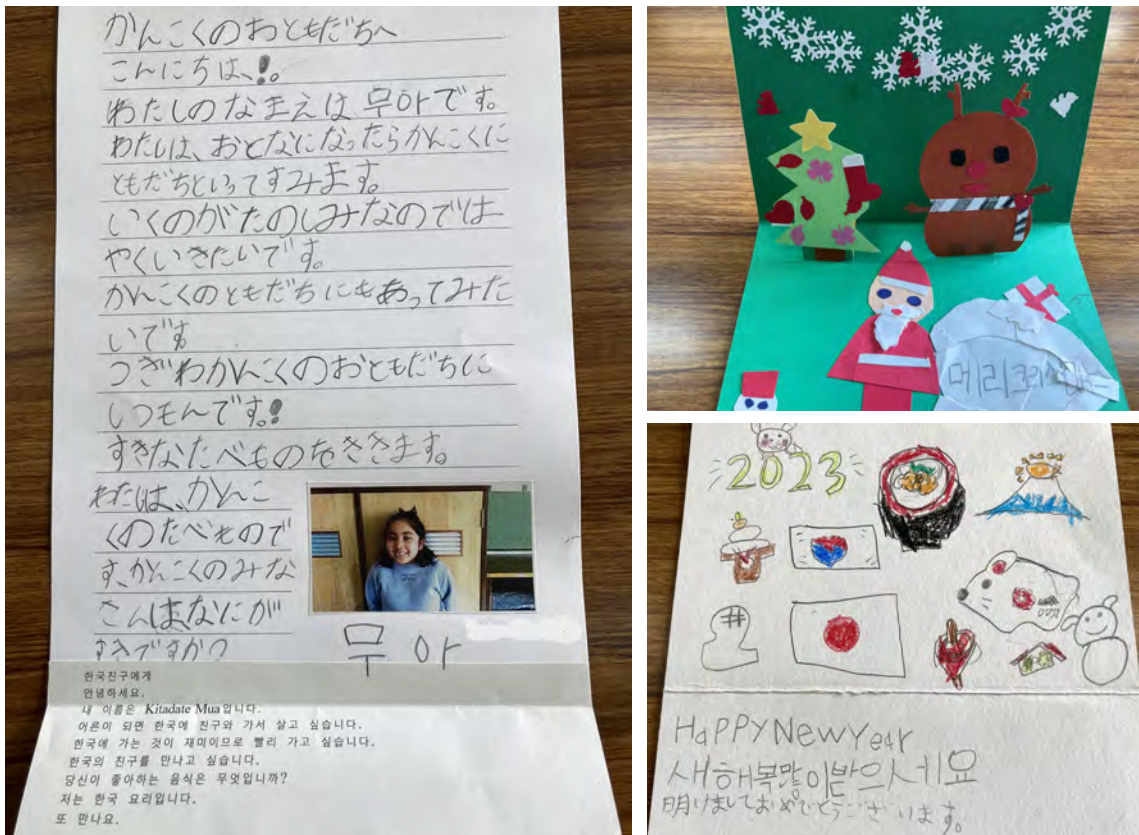 かんこくのおともだちへ
こんにちは、!。
わたしのなまえは 무아です。
わたしは、おとなになったらかんこくに
ともだちといってすみます。
いくのがたのしみなのでは
やくいきたいです。
かんこくのともだちにもあってみた
いです
つぎわかんくのおともだちに
しつもんです。!
すきなたべものをききます。
わたしは、かんこ
くのたべもので
す、かんこくのみな
さんは、なにが
すきですか?
무아
한국친구에게
안녕하세요.
내 이름은 Kitadate Mua입니다.
어른이 되면 한국에 친구와 가서 살고 싶습니다.
한국에 가는 것이 재미이므로 빨리 가고 싶습니다.
한국의 친구를 만나고 싶습니다.
당신이 좋아하는 음식은 무엇입니까?
저는 한국 요리입니다.
또 만나요.
메리크리스마스
2023
HaPPY NewYear
새해복많이받으세요
明けましておめでとうございます。